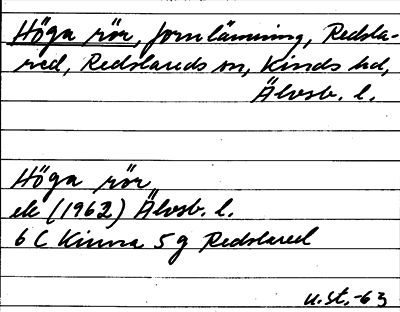 Höga rör, fornlämning, Redsla-
red, Redslareds sn, Kinds hd,
Älvsb. l.
Höga rör
ek (1962) Älvsb. l.
6 C Kinna 5 g Redslared
u.st.-63